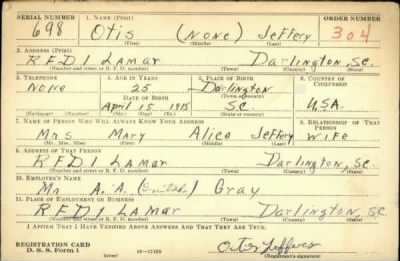 SERIAL NUMBER 1. NAME (Print) ORDER NUMBER
698 Otis (None) Jeffery 304
(First) (Middle) (Last)
2. ADDRESS (Print)
R.F.D.1 Lamar Darlington, S.C.
(Number and street or R. F. D. number) (Town) (County) (State)
3. TELEPHONE 4. AGE IN YEARS 5. PLACE OF BIRTH 6. COUNTRY OF CITIZENSHIP
None 25 Darlington
DATE OF BIRTH (Town or county)
April 15 1915 S.C. U.S.A.
(Exchange) (Number) (Mo.) (Day) (Yr.) (State or country)
7. NAME OF PERSON WHO WILL ALWAYS KNOW YOUR ADDRESS 8. RELATIONSHIP OF THAT PERSON
Mrs Mary Alice Jeffery Wife
(Mr., Mrs., Miss) (First) (Middle) (Last)
9. ADDRESS OF THAT PERSON
R.F.D.1 Lamar Darlington, S.C.
(Number and street or R. F. D. number) (Town) (County) (State)
10. EMPLOYER'S NAME
Mr A. A. Gray
11. PLACE OF EMPLOYMENT OR BUSINESS
R.F.D.1 Lamar Darlington, S.C.
(Number and street or R. F. D. number) (Town) (County) (State)
I AFFIRM THAT I HAVE VERIFIED ABOVE ANSWERS AND THAT THEY ARE TRUE.
REGISTRATION CARD
D. S. S. Form 1 (over) Otis
(Registrant's signature)